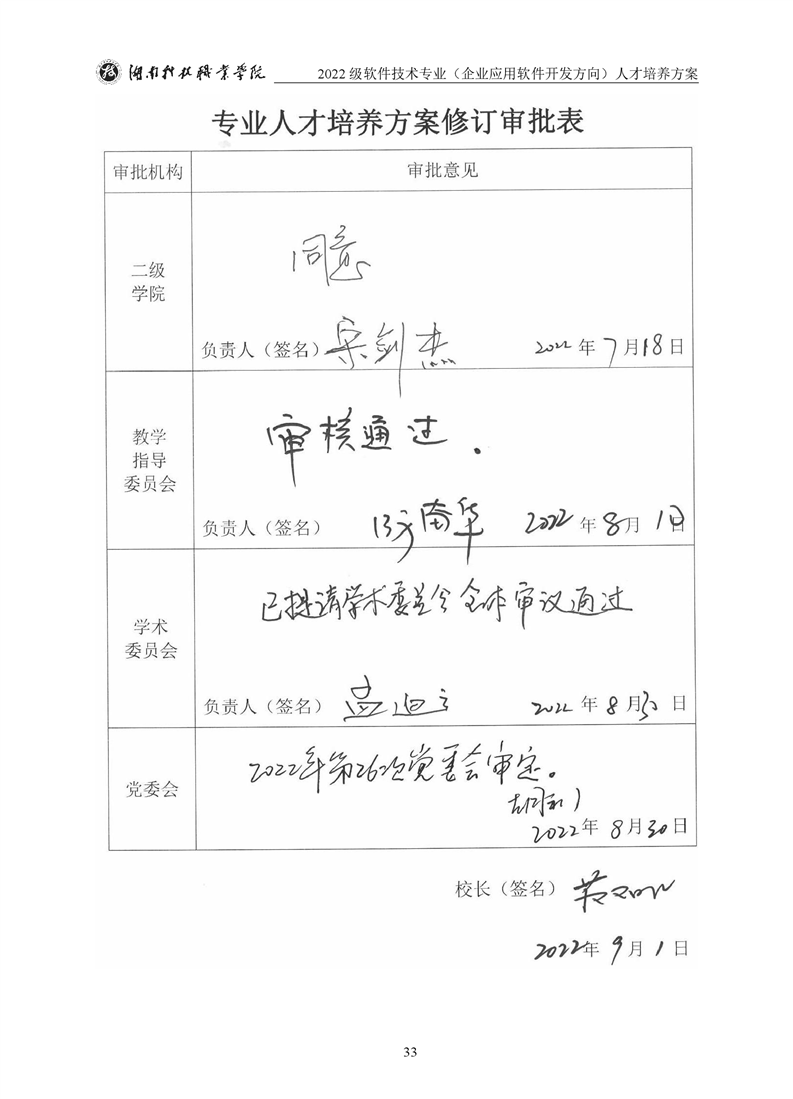 湖南科技职业学院
2022 级软件技术专业（企业应用软件开发方向）人才培养方案
专业人才培养方案修订审批表
审批机构
审批意见
二级
学院
同意
负责人（签名）宋剑杰
2022 年 7 月 18 日
教学
指导
委员会
审核通过。
负责人（签名）
南华
2022 年 8 月 1 日
学术
委员会
已提请学术委员会全体审议通过
负责人（签名）孟迪云
2022 年 8 月 30 日
党委会
2022年第26次党委会审定。
2022年 8 月 30 日
校长（签名）
2022年 9 月 1 日
33